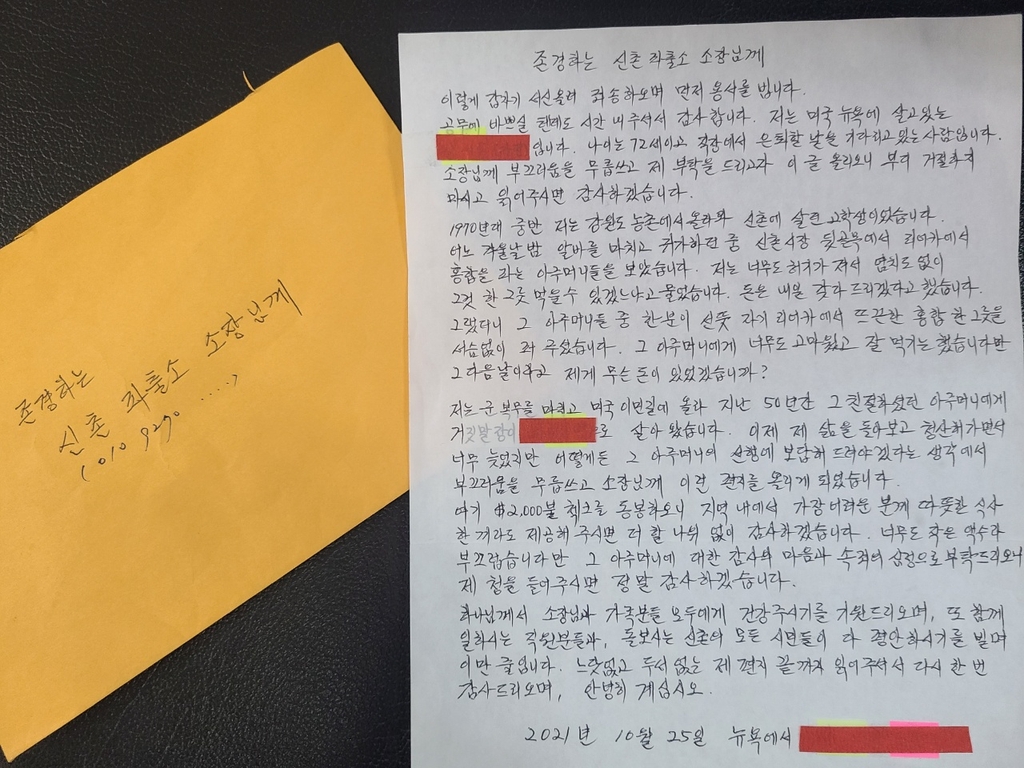 존경하는
신촌 파출소 소장님께
존경하는 신촌 파출소 소장님께
이렇게 갑자기 서신올려 죄송하오며 먼저 용서를 빕니다.
공무에 바쁘실 텐데도 시간 내주셔서 감사합니다. 저는 미국 뉴욕에 살고있는
입니다. 나이는 72세이고 직장에서 은퇴할 날을 기다리고 있는 사람입니다.
소장님께 부끄러움을 무릅쓰고 제 부탁을 드리고자 이 글 올리오니 부디 거절하지
마시고 읽어주시면 감사하겠습니다.
1970년대 중반 저는 강원도 농촌에서 올라와 신촌에 살던 고학생이었습니다.
어느 겨울날 밤 알바를 마치고 귀가하던 중 신촌시장 뒷골목에서 리어카에서
홍합을 파는 아주머니들을 보았습니다. 저는 너무도 허기가 져서 염치도 없이
그것 한 그릇 먹을수 있겠느냐고 물었습니다. 돈은 내일 갖다 드리겠다고 했습니다.
그랬더니 그 아주머니들 중 한분이 선뜻 자기 리어카에서 뜨끈한 홍합 한 그릇을
서슴없이 퍼 주셨습니다. 그 아주머니에게 너무도 고마웠고 잘 먹기는 했습니다만
그 다음날이라고 제게 무슨 돈이 있었겠습니까?
저는 군 복무를 마치고 미국 이민길에 올라 지난 50년간 그 친절하셨던 아주머니에게
거짓말쟁이 로 살아 왔습니다. 이제 제 삶을 돌아보고 청산해가면서
너무 늦었지만 어떻게든 그 아주머니의 선행에 보답해 드려야겠다는 생각에서
부끄러움을 무릅쓰고 소장님께 이런 편지를 올리게 되었습니다.
여기 $2,000불 체크를 동봉하오니 지역 내에서 가장 어려운 분께 따뜻한 식사
한 끼라도 제공해 주시면 더 할 나위 없이 감사하겠습니다. 너무도 작은 액수라
부끄럽습니다만 그 아주머니에 대한 감사의 마음과 속죄의 심정으로 부탁드리오니
제 청을 들어주시면 정말 감사하겠습니다.
하나님께서 소장님과 가족분들 모두에게 건강주시기를 기원드리오며, 또 함께
일하시는 직원분들과, 돌보시는 신촌의 모든 시민들이 다 평안하시기를 빌며
이만 줄입니다. 느닷없고 두서 없는 제 편지 끝까지 읽어주셔서 다시 한 번
감사드리오며, 안녕히 계십시오.
2021년 10월 25일 뉴욕에서